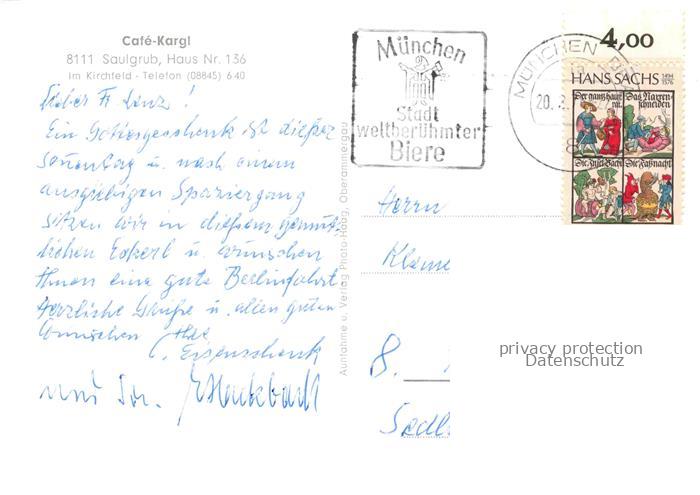 Café-Kargl
8111 Saulgrub, Haus Nr. 136
Im Kirchfeld - Telefon (08845) 640
Lieber Fr. Linz!
Ein Gottesgeschenk ist dieser
Sonntag u. nach einem
ausgiebigen Spaziergang
sitzen wir in diesem gemüt-
lichen Eckerl u. wünschen
Ihnen eine gute Berlinfahrt
Herzliche Grüße u. allen guten
Wünschen Ihre
Eisenschenk
und
Aufnahme u. Verlag Photo-Haag, Oberammergau
München
Stadt
weltberühmter
Biere
MÜNCHEN
20.
8
4,00
HANS SACHS 1494 1576
Der gantz haußrat
Das Narren schneiden
Die Insel Bachi
Die Faßnacht
Herrn
8.
privacy protection
Datenschutz